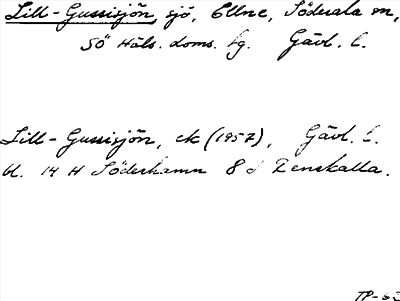 Lill-Gussisjön, sjö, Ellne, Söderala sn,
SÖ Häls. doms. hg. Gävl. l.
Lill-Gussisjön, ek (1957), Gävl. l.
bl. 14 H Söderhamn 8 d Enskalla.
TP-63